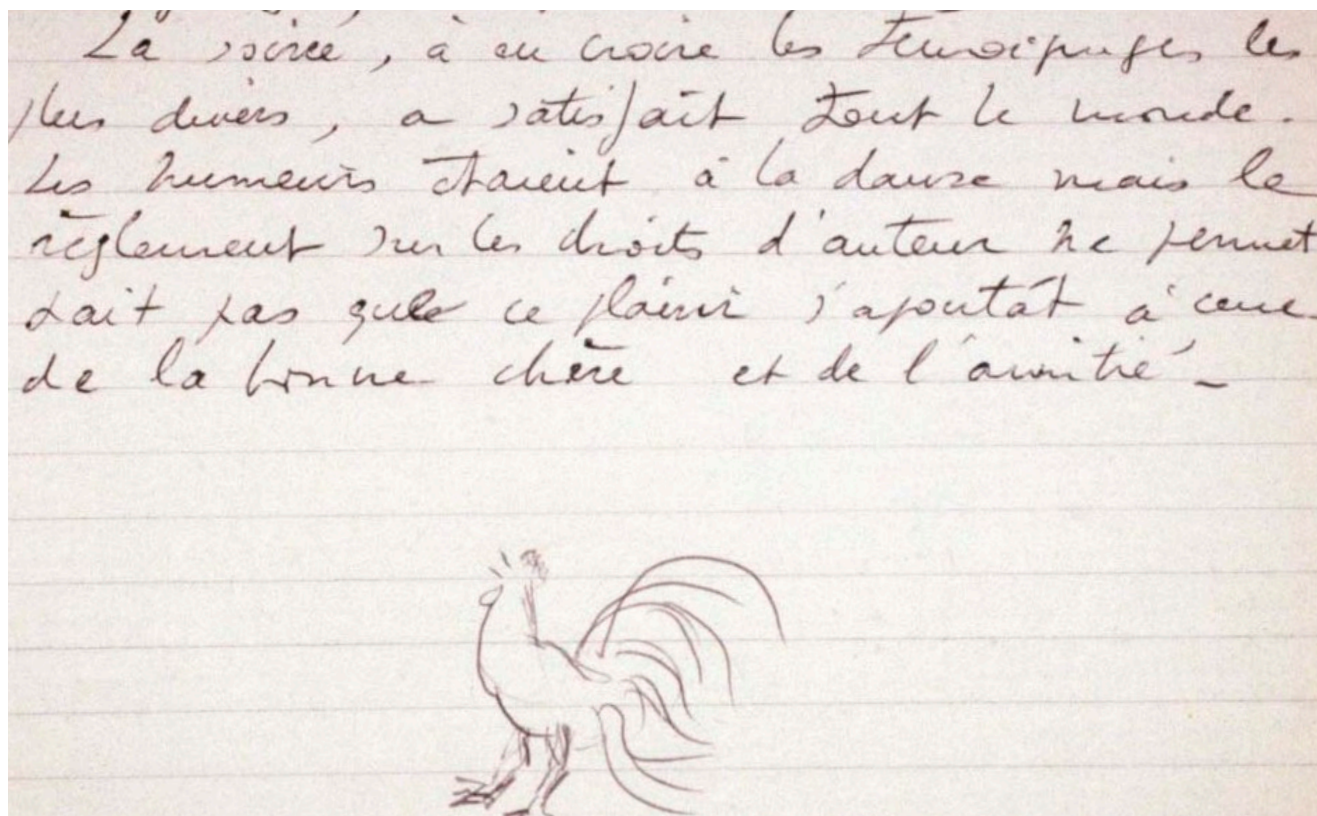 La soirée, à en croire les témoignages les
plus divers, a satisfait tout le monde.
Les humeurs étaient à la danse mais le
règlement sur les droits d'auteur ne permet
tait pas que ce plaisir s'ajoutât à ceux
de la bonne chère et de l'amitié -